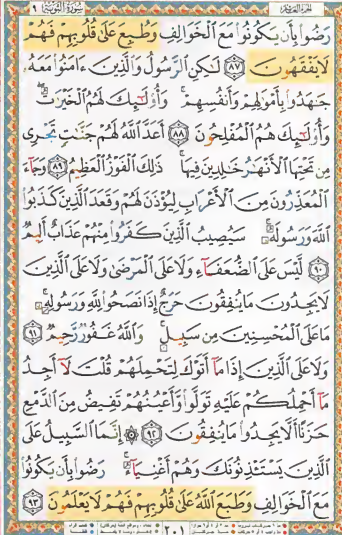 سُورَةُ التَّوْبَةِ ٩
رَضُوا۟ بِأَن يَكُونُوا۟ مَعَ ٱلْخَوَالِفِ وَطُبِعَ عَلَىٰ قُلُوبِهِمْ فَهُمْ
لَا يَفْقَهُونَ ٨٧ لَٰكِنِ ٱلرَّسُولُ وَٱلَّذِينَ ءَامَنُوا۟ مَعَهُۥ
جَٰهَدُوا۟ بِأَمْوَٰلِهِمْ وَأَنفُسِهِمْ ۚ وَأُو۟لَٰٓئِكَ لَهُمُ ٱلْخَيْرَٰتُ ۖ
وَأُو۟لَٰٓئِكَ هُمُ ٱلْمُفْلِحُونَ ٨٨ أَعَدَّ ٱللَّهُ لَهُمْ جَنَّٰتٍ تَجْرِى
مِن تَحْتِهَا ٱلْأَنْهَٰرُ خَٰلِدِينَ فِيهَا ۚ ذَٰلِكَ ٱلْفَوْزُ ٱلْعَظِيمُ ٨٩ وَجَآءَ
ٱلْمُعَذِّرُونَ مِنَ ٱلْأَعْرَابِ لِيُؤْذَنَ لَهُمْ وَقَعَدَ ٱلَّذِينَ كَذَبُوا۟
ٱللَّهَ وَرَسُولَهُۥ ۚ سَيُصِيبُ ٱلَّذِينَ كَفَرُوا۟ مِنْهُمْ عَذَابٌ أَلِيمٌ
٩٠ لَّيْسَ عَلَى ٱلضُّعَفَآءِ وَلَا عَلَى ٱلْمَرْضَىٰ وَلَا عَلَى ٱلَّذِينَ
لَا يَجِدُونَ مَا يُنفِقُونَ حَرَجٌ إِذَا نَصَحُوا۟ لِلَّهِ وَرَسُولِهِۦ ۚ
مَا عَلَى ٱلْمُحْسِنِينَ مِن سَبِيلٍ ۚ وَٱللَّهُ غَفُورٌ رَّحِيمٌ ٩١
وَلَا عَلَى ٱلَّذِينَ إِذَا مَآ أَتَوْكَ لِتَحْمِلَهُمْ قُلْتَ لَآ أَجِدُ
مَآ أَحْمِلُكُمْ عَلَيْهِ تَوَلَّوا۟ وَّأَعْيُنُهُمْ تَفِيضُ مِنَ ٱلدَّمْعِ
حَزَنًا أَلَّا يَجِدُوا۟ مَا يُنفِقُونَ ٩٢ ۞ إِنَّمَا ٱلسَّبِيلُ عَلَى
ٱلَّذِينَ يَسْتَـْٔذِنُونَكَ وَهُمْ أَغْنِيَآءُ ۚ رَضُوا۟ بِأَن يَكُونُوا۟
مَعَ ٱلْخَوَالِفِ وَطَبَعَ ٱللَّهُ عَلَىٰ قُلُوبِهِمْ فَهُمْ لَا يَعْلَمُونَ ٩٣
٢٠١